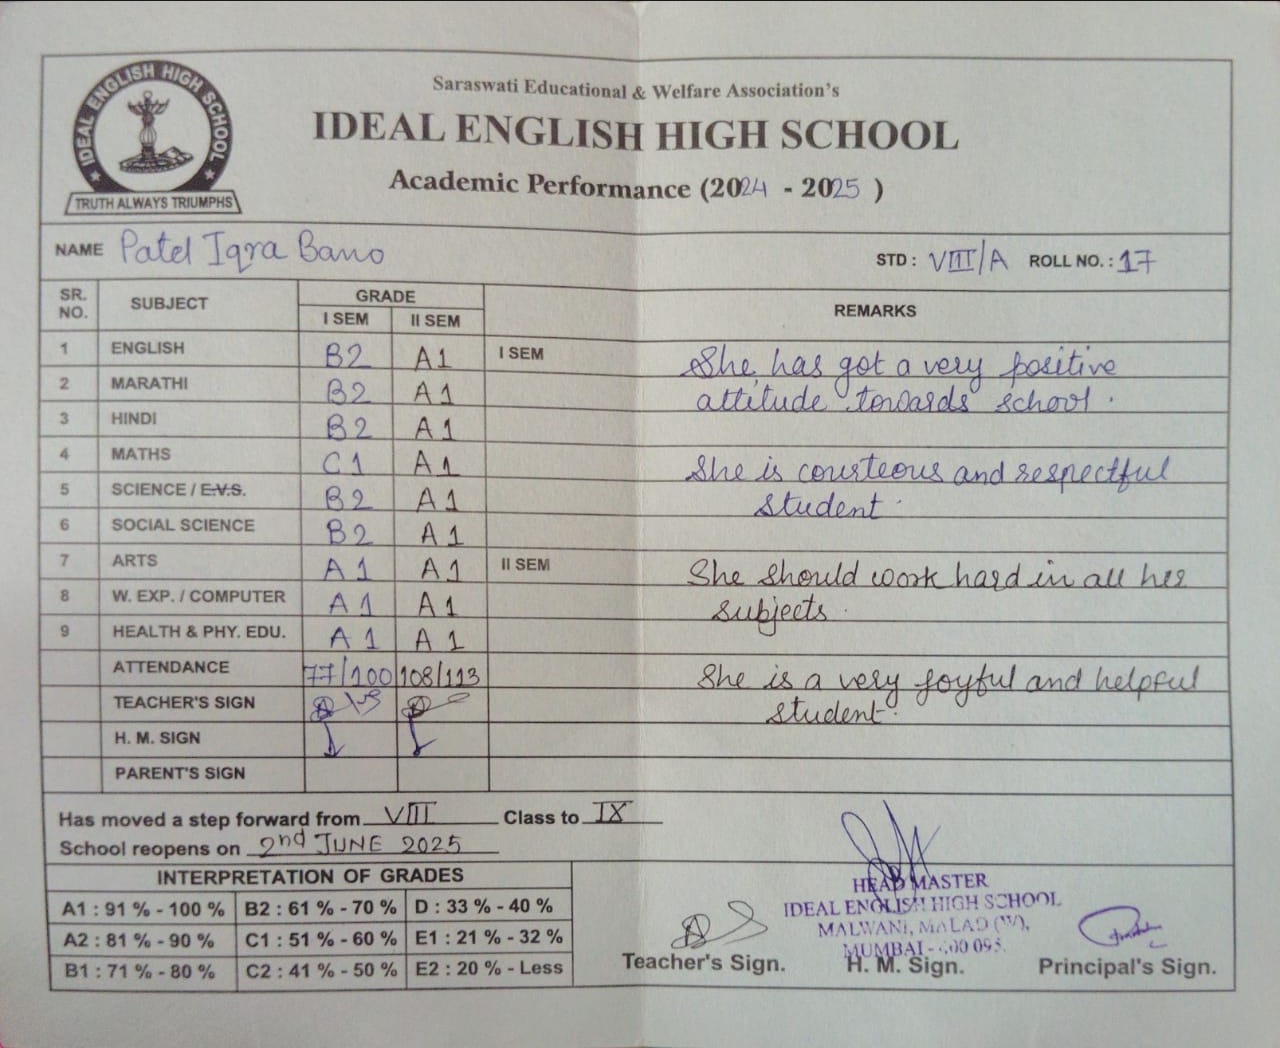 IDEAL ENGLISH HIGH SCHOOL
TRUTH ALWAYS TRIUMPHS
Saraswati Educational & Welfare Association's
IDEAL ENGLISH HIGH SCHOOL
Academic Performance (2024 - 2025 )
NAME Patel Iqra Bano STD : VIII/A ROLL NO. : 17
SR. NO. SUBJECT GRADE REMARKS
I SEM II SEM
1 ENGLISH B2 A1 I SEM She has got a very positive
2 MARATHI B2 A1 attitude towards school.
3 HINDI B2 A1
4 MATHS C1 A1 She is courteous and respectful
5 SCIENCE / E.V.S. B2 A1 student.
6 SOCIAL SCIENCE B2 A1
7 ARTS A1 A1 II SEM She should work hard in all her
8 W. EXP. / COMPUTER A1 A1 subjects.
9 HEALTH & PHY. EDU. A1 A1
ATTENDANCE 77/100 108/113 She is a very joyful and helpful
TEACHER'S SIGN student.
H. M. SIGN
PARENT'S SIGN
Has moved a step forward from VIII Class to IX
School reopens on 2nd JUNE 2025
INTERPRETATION OF GRADES
A1 : 91 % - 100 % B2 : 61 % - 70 % D : 33 % - 40 %
A2 : 81 % - 90 % C1 : 51 % - 60 % E1 : 21 % - 32 %
B1 : 71 % - 80 % C2 : 41 % - 50 % E2 : 20 % - Less
HEAD MASTER
IDEAL ENGLISH HIGH SCHOOL
MALWANI, MALAD (W),
MUMBAI - 400 095.
Teacher's Sign. H. M. Sign. Principal's Sign.